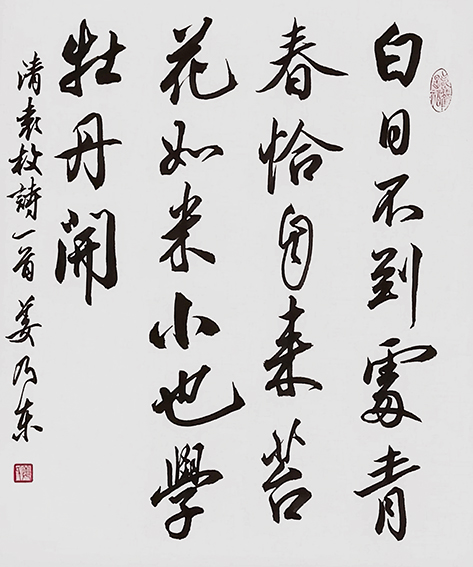 白日不到處青
春恰自来苔
花如米小也學
牡丹開
清袁枚詩一首 姜乃东